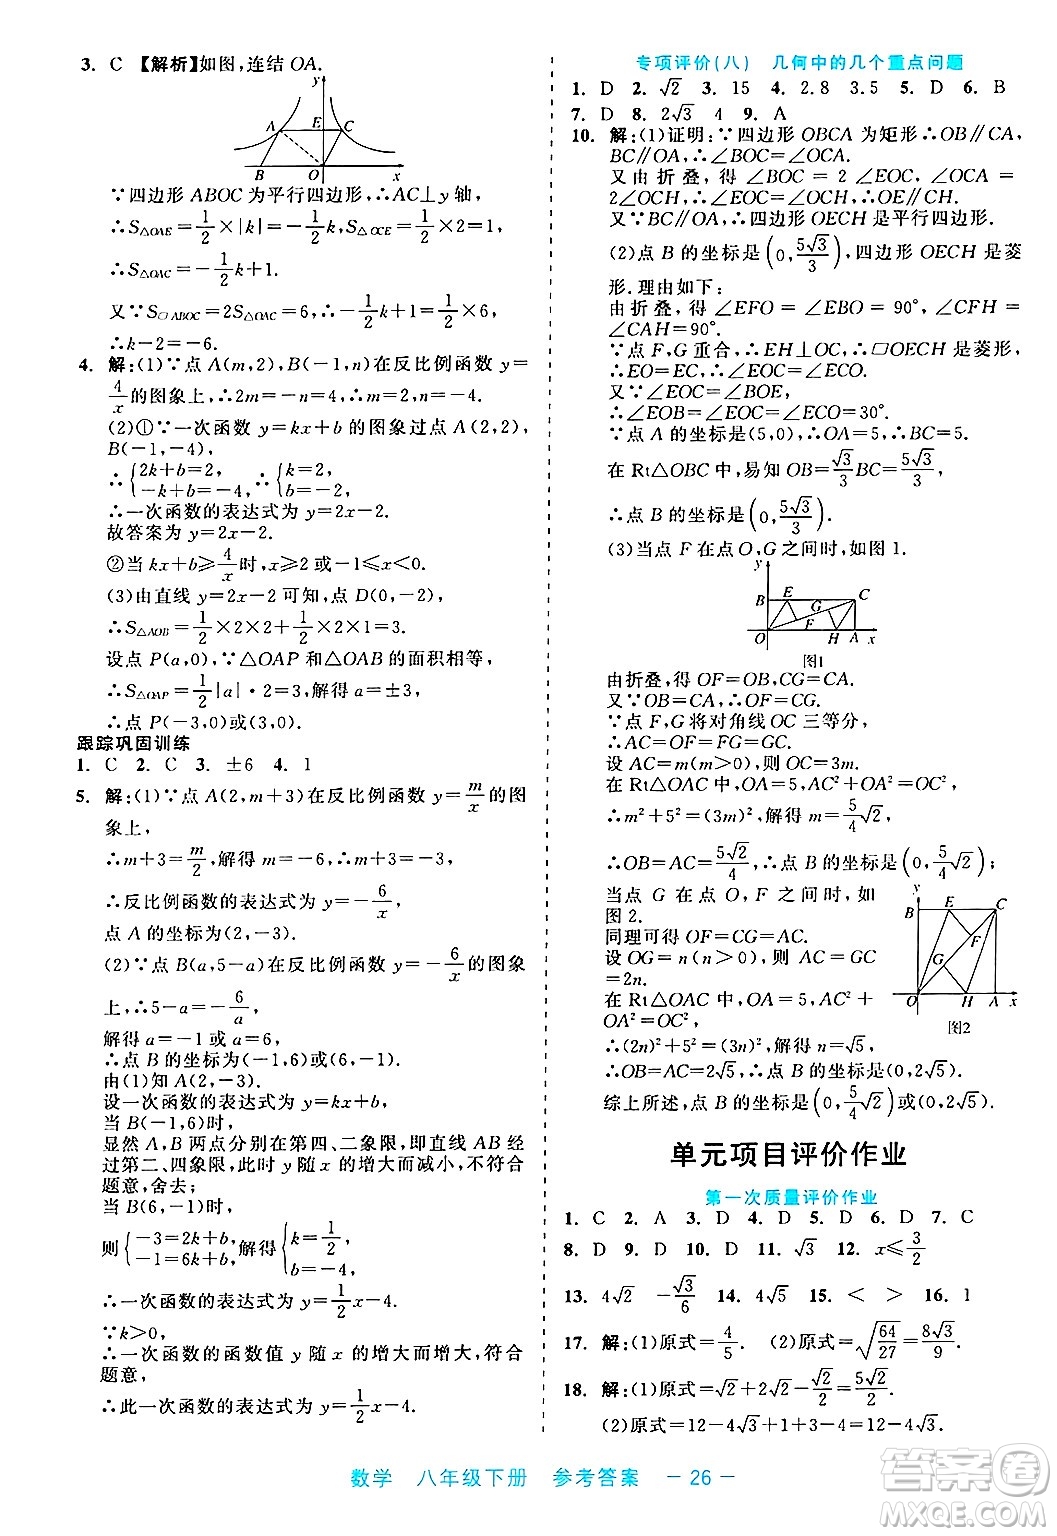 3. C 【解析】如图,连结 OA.
y
A E C
B O x
∵四边形 ABOC 为平行四边形,∴AC⊥y 轴,
∴S△OAE=1/2×|k|=-1/2k,S△OCE=1/2×2=1,
∴S△OAC=-1/2k+1.
又∵S▱ABOC=2S△OAC=6,∴-1/2k+1=1/2×6,
∴k-2=-6.
4. 解:(1)∵点 A(m,2),B(-1,n)在反比例函数 y=
4/x的图象上,∴2m=-n=4,∴m=2,n=-4.
(2)①∵一次函数 y=kx+b 的图象过点 A(2,2),
B(-1,-4),
∴{2k+b=2, -k+b=-4, ∴{k=2, b=-2,
∴一次函数的表达式为 y=2x-2.
故答案为 y=2x-2.
②当 kx+b≥4/x时,x≥2或-1≤x<0.
(3)由直线 y=2x-2 可知,点 D(0,-2),
∴S△AOB=1/2×2×2+1/2×2×1=3.
设点 P(a,0),∵△OAP 和△OAB 的面积相等,
∴S△OAP=1/2|a|·2=3,解得 a=±3,
∴点 P(-3,0)或(3,0).
跟踪巩固训练
1. C 2. C 3. ±6 4. 1
5. 解:(1)∵点 A(2,m+3)在反比例函数 y=m/x的图
象上,
∴m+3=m/2,解得 m=-6,∴m+3=-3,
∴反比例函数的表达式为 y=-6/x,
点 A 的坐标为(2,-3).
(2)∵点 B(a,5-a)在反比例函数 y=-6/x的图象
上,∴5-a=-6/a,
解得 a=-1 或 a=6,
∴点 B 的坐标为(-1,6)或(6,-1).
由(1)知 A(2,-3).
设一次函数的表达式为 y=kx+b,
当 B(-1,6)时,
显然 A,B 两点分别在第四、二象限,即直线 AB 经
过第二、四象限,此时 y 随 x 的增大而减小,不符合
题意,舍去;
当 B(6,-1)时,
则{-3=2k+b, -1=6k+b, 解得{k=1/2, b=-4,
∴一次函数的表达式为 y=1/2x-4.
∵k>0,
∴一次函数的函数值 y 随 x 的增大而增大,符合
题意,
∴此一次函数的表达式为 y=1/2x-4.
专项评价(八) 几何中的几个重点问题
1. D 2. √2 3. 15 4. 2.8 3.5 5. D 6. B
7. D 8. 2√3 4 9. A
10. 解:(1)证明:∵四边形 OBCA 为矩形∴OB∥CA,
BC∥OA,∴∠BOC=∠OCA.
又由折叠,得∠BOC=2∠EOC,∠OCA=
2∠OCH,∴∠EOC=∠OCH,∴OE∥CH.
又∵BC∥OA,∴四边形 OECH 是平行四边形.
(2)点 B 的坐标是(0,5√3/3),四边形 OECH 是菱
形.理由如下:
由折叠,得∠EFO=∠EBO=90°,∠CFH=
∠CAH=90°.
∵点 F,G 重合,∴EH⊥OC,∴▱OECH 是菱形,
∴EO=EC,∴∠EOC=∠ECO.
又∵∠EOC=∠BOE,
∴∠EOB=∠EOC=∠ECO=30°.
∵点 A 的坐标是(5,0),∴OA=5,∴BC=5.
在 Rt△OBC 中,易知 OB=√3/3BC=5√3/3,
∴点 B 的坐标是(0,5√3/3).
(3)当点 F 在点 O,G 之间时,如图 1.
y
B E C
G
F
O H A x
图1
由折叠,得 OF=OB,CG=CA.
又∵OB=CA,∴OF=CG.
∵点 F,G 将对角线 OC 三等分,
∴AC=OF=FG=GC.
设 AC=m(m>0),则 OC=3m.
在 Rt△OAC 中,OA=5,AC²+OA²=OC²,
∴m²+5²=(3m)²,解得 m=5/4√2,
∴OB=AC=5√2/4,∴点 B 的坐标是(0,5/4√2);
当点 G 在点 O,F 之间时,如
图 2.
同理可得 OF=CG=AC.
设 OG=n(n>0),则 AC=GC
=2n.
在 Rt△OAC 中,OA=5,AC²+
OA²=OC²,
∴(2n)²+5²=(3n)²,解得 n=√5,
y
B E C
F
G
O H A x
图2
∴OB=AC=2√5,∴点 B 的坐标是(0,2√5).
综上所述,点 B 的坐标是(0,5/4√2)或(0,2√5).
单元项目评价作业
第一次质量评价作业
1. C 2. A 3. D 4. D 5. D 6. D 7. C
8. D 9. D 10. D 11. √3 12. x≤3/2
13. 4√2 -√3/6 14. 4√5 15. < > 16. 1
17. 解:(1)原式=4/5. (2)原式=√(64/27)=8√3/9.
18. 解:(1)原式=√2+2√2-√2/2=5√2/2.
(2)原式=12-4√3+1+3-4=12-4√3.
数学 八年级下册 参考答案 — 26 —
答案圈
MXQE.COM